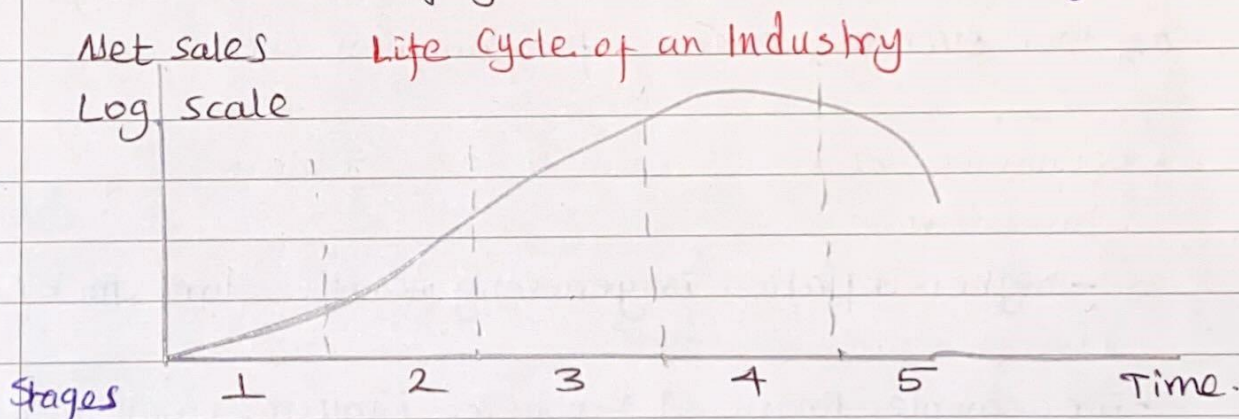 Net sales Life Cycle of an Industry
Log scale
Stages 1 2 3 4 5 Time.